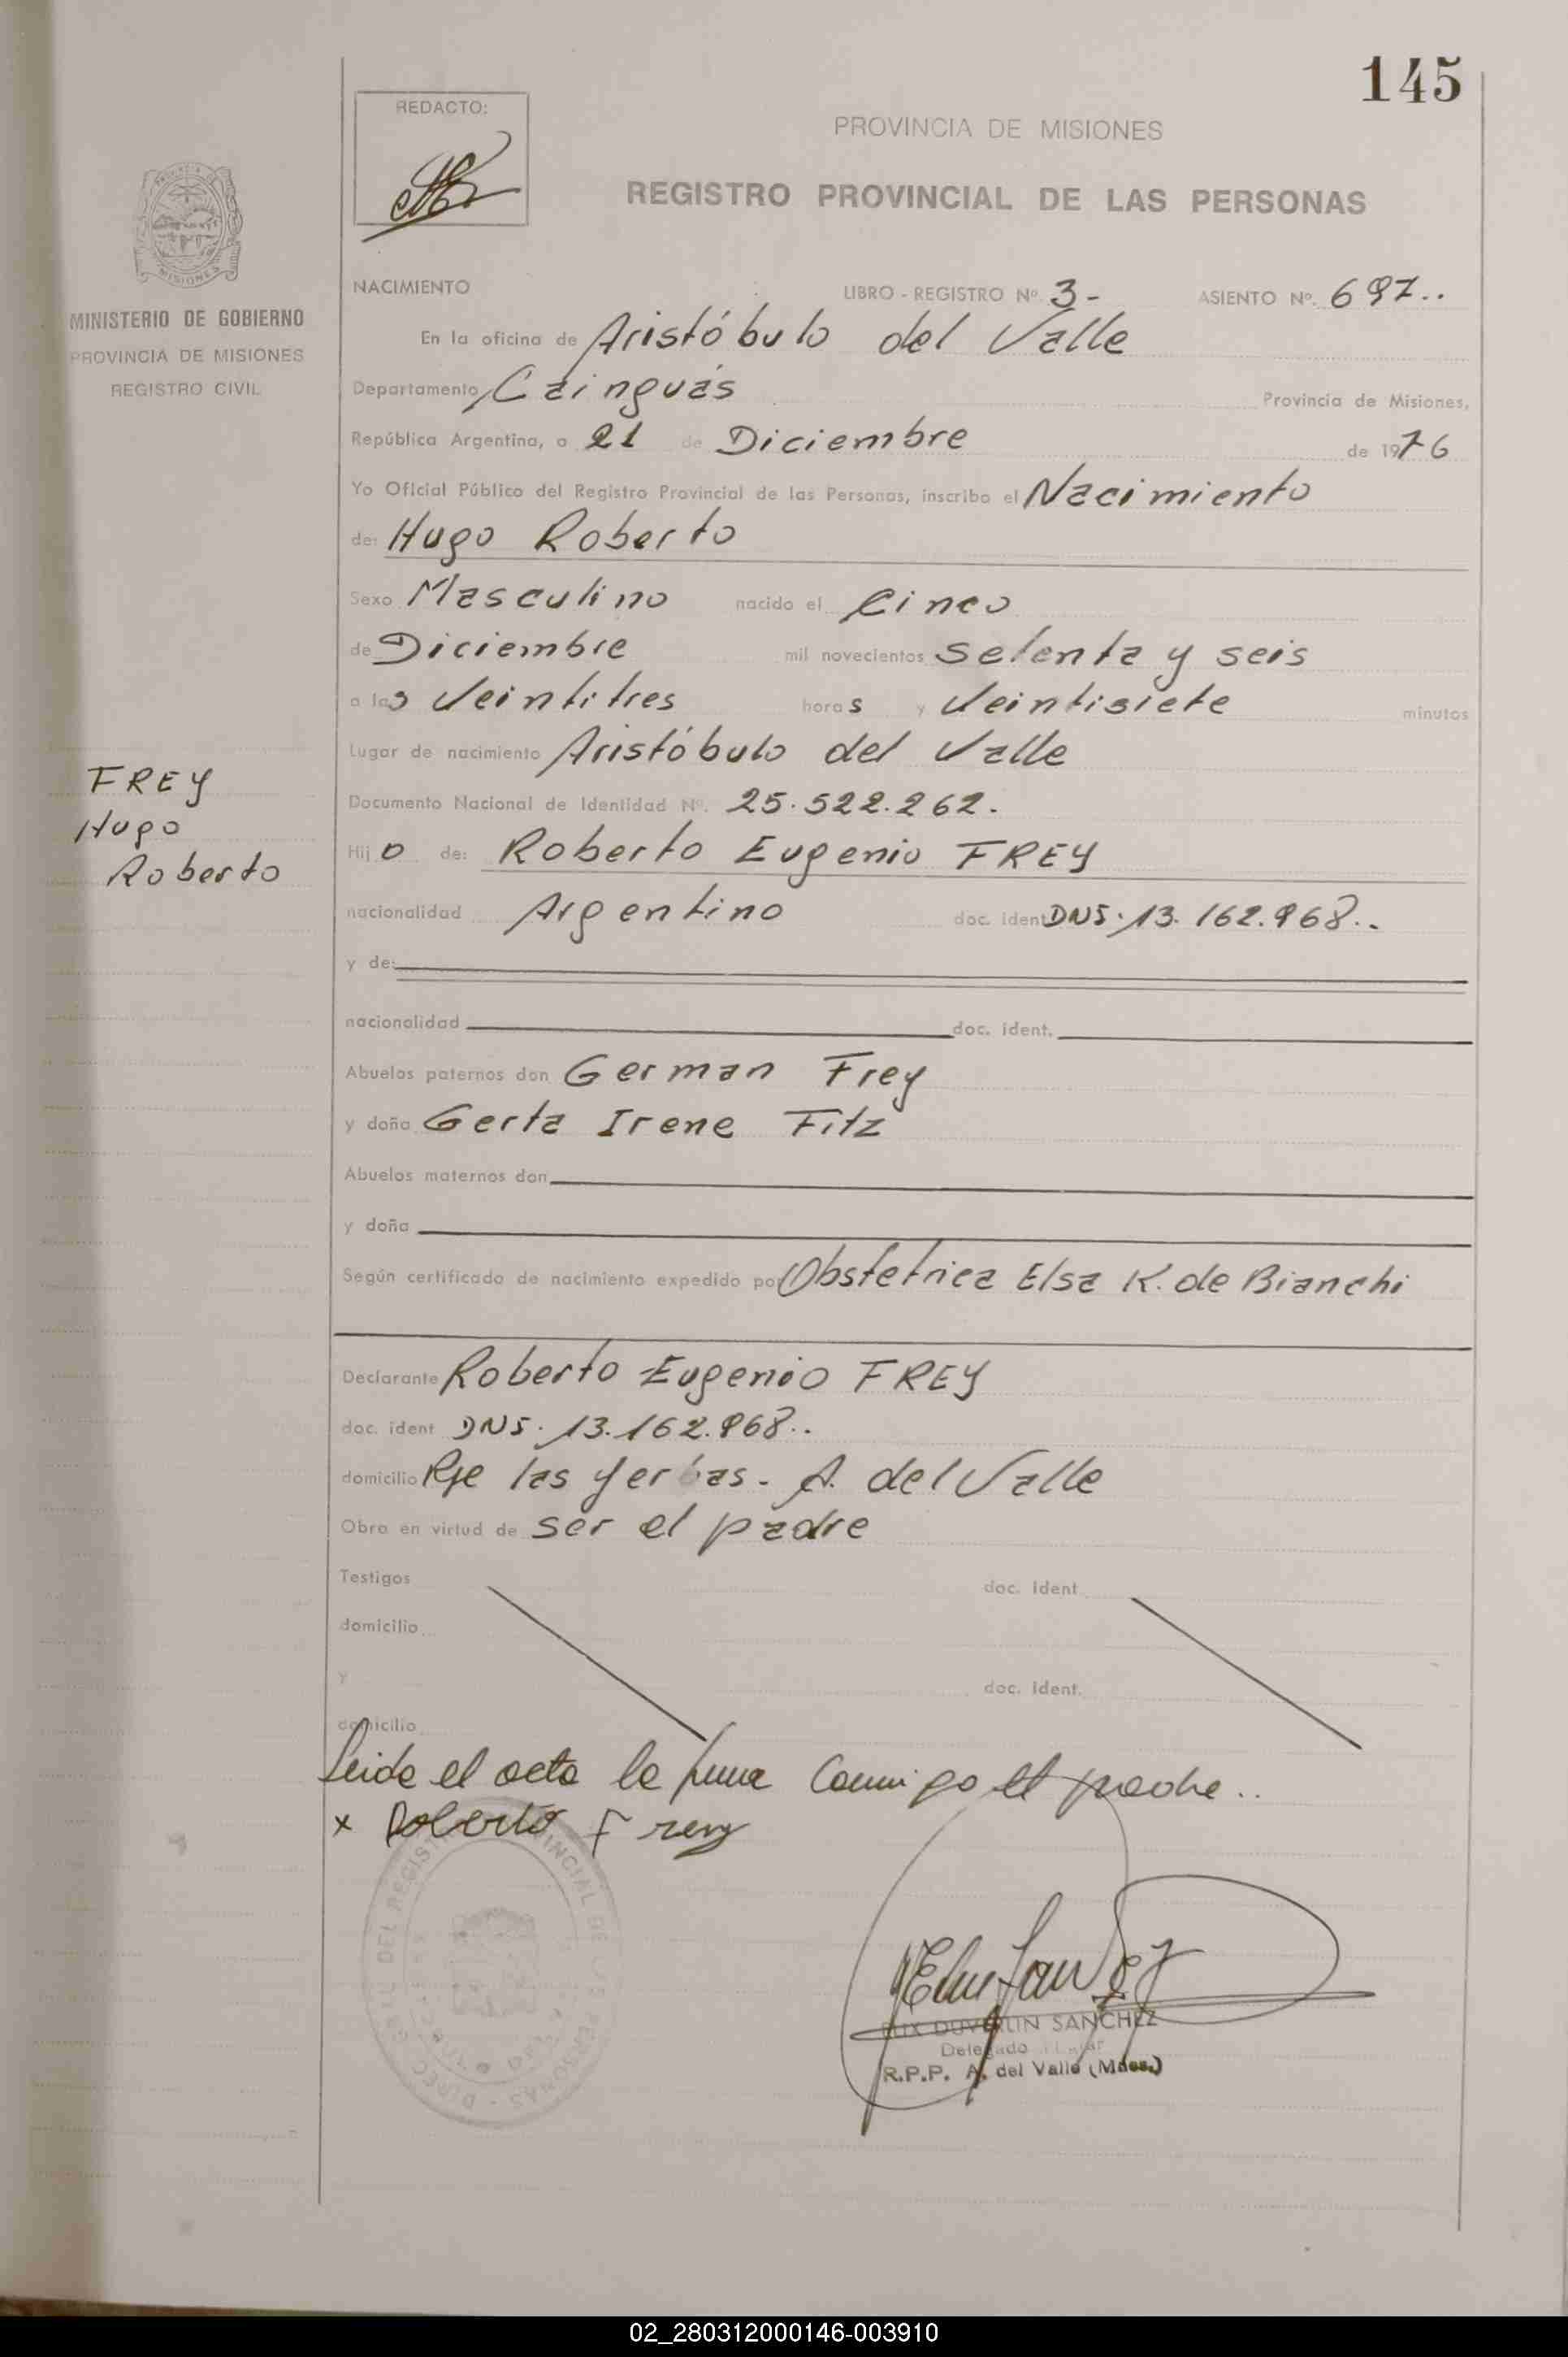 145
REDACTO:
PROVINCIA DE MISIONES
REGISTRO PROVINCIAL DE LAS PERSONAS
MISIONES
MINISTERIO DE GOBIERNO
PROVINCIA DE MISIONES
REGISTRO CIVIL
FREY
Hugo
Roberto
NACIMIENTO LIBRO - REGISTRO Nº 3- ASIENTO Nº. 697..
En la oficina de Aristóbulo del Valle
Departamento Cainguás Provincia de Misiones,
República Argentina, a 21 de Diciembre de 1976
Yo Oficial Público del Registro Provincial de las Personas, inscribo el Nacimiento
de: Hugo Roberto
Sexo Masculino nacido el Cinco
de Diciembre mil novecientos setenta y seis
a las Veintitres horas y Veintisiete minutos
Lugar de nacimiento Aristóbulo del Valle
Documento Nacional de Identidad Nº. 25.522.262.
Hijo de: Roberto Eugenio FREY
nacionalidad Argentino doc. ident DNI. 13.162.968..
y de:
nacionalidad doc. ident.
Abuelos paternos don German Frey
y doña Gerta Irene Fitz
Abuelos maternos don
y doña
Según certificado de nacimiento expedido por Obstetrica Elsa K. de Bianchi
Declarante Roberto Eugenio FREY
doc. ident DNI. 13.162.968..
domicilio Pje las yerbas - A. del Valle
Obra en virtud de ser el padre
Testigos doc. ident
domicilio
y doc. ident.
domicilio
Leida el acta la firma Conmigo el padre..
x Roberto Frey
SANCHEZ
Delegado
R.P.P. A. del Valle (Mnes.)
02_280312000146-003910